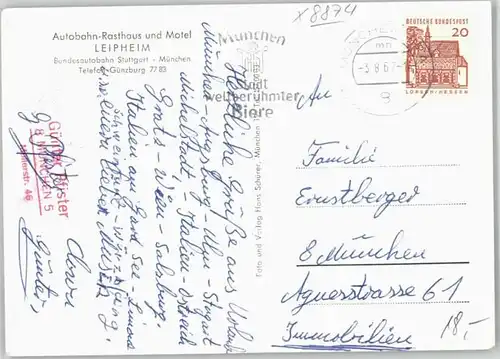 x 8874
Autobahn-Rasthaus und Motel
LEIPHEIM
Bundesautobahn Stuttgart - München
Telefon Günzburg 77 83
München
Stadt
weltberühmter
Biere
MÜNCHEN
mn
-3.8.67
8
DEUTSCHE BUNDESPOST
20
LORSCH-HESSEN
Herzliche Grüße aus Urlaub
München - Augsburg - Ulm - Stuttgart
Michelstadt, - Italien - Österreich
Graz - Wien - Salzburg.
Italien am Garda See - Limone
Schweinfurt - Würzburg.
Günter
8 MÜNCHEN 5
Müllerstr. 46
Günter,
Foto und Verlag Hans Schürer, München
An
Familie
Ernstberger
8 München
Agnesstrasse 61
Immobilien
18,-